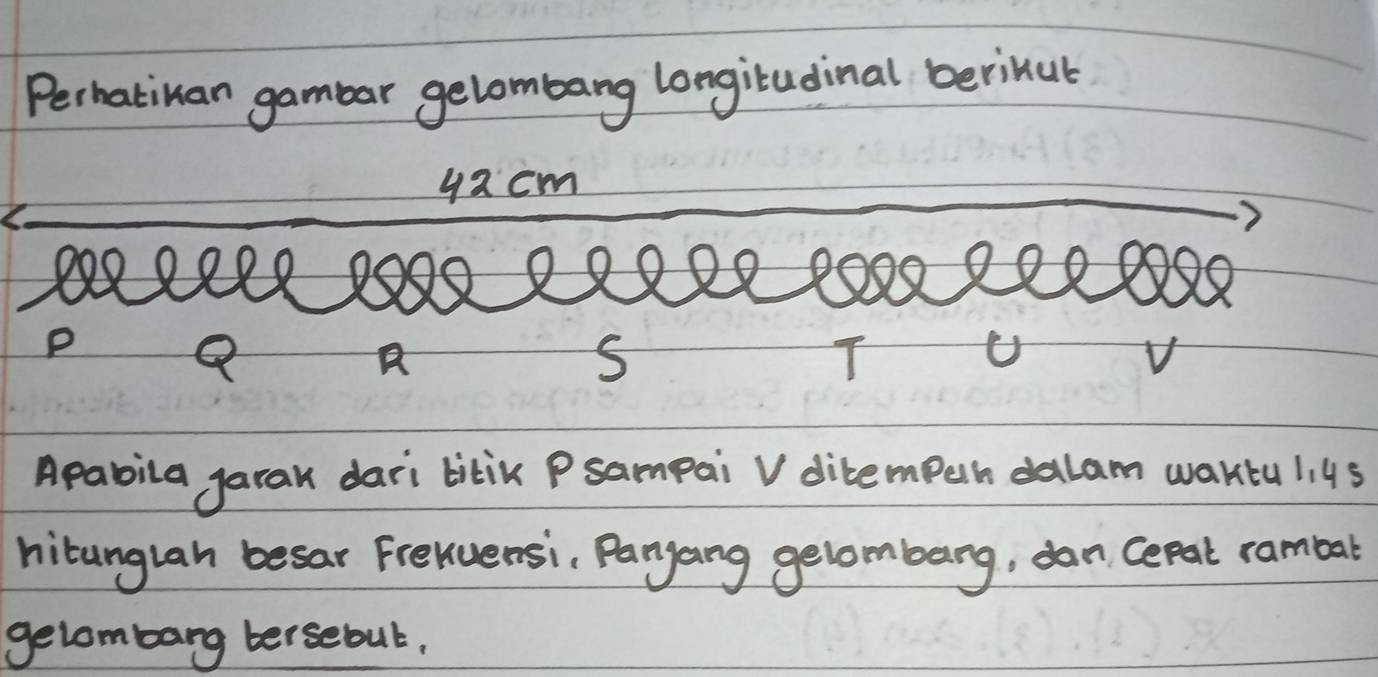 Perhatikan gambar gelombang longitudinal berikut
42 cm
P Q R S T U V
Apabila jarak dari titik P sampai V ditempuh dalam waktu 1,4 s
hitunglah besar Frekuensi, Panjang gelombang, dan Cepat rambat
gelombang tersebut.